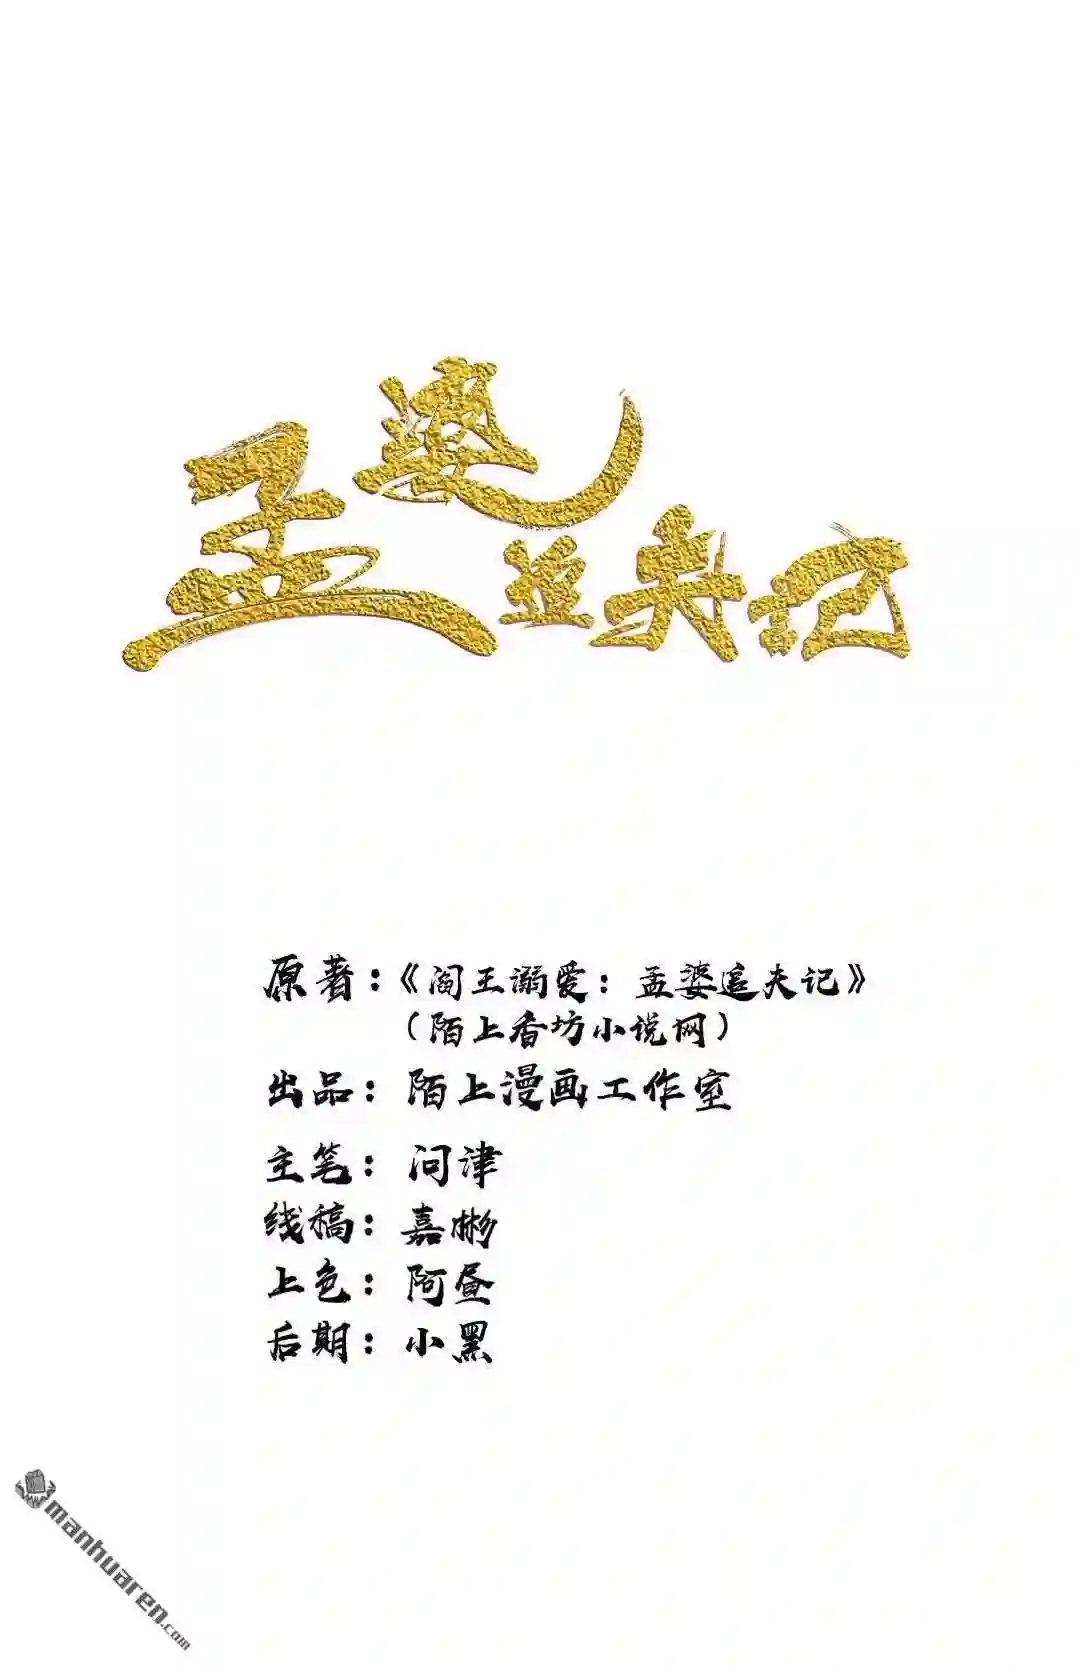 孟婆追夫记
原著：《阎王溺爱：孟婆追夫记》
（陌上香坊小说网）
出品：陌上漫画工作室
主笔：问津
线稿：嘉彬
上色：阿昼
后期：小黑
manhuaren.com